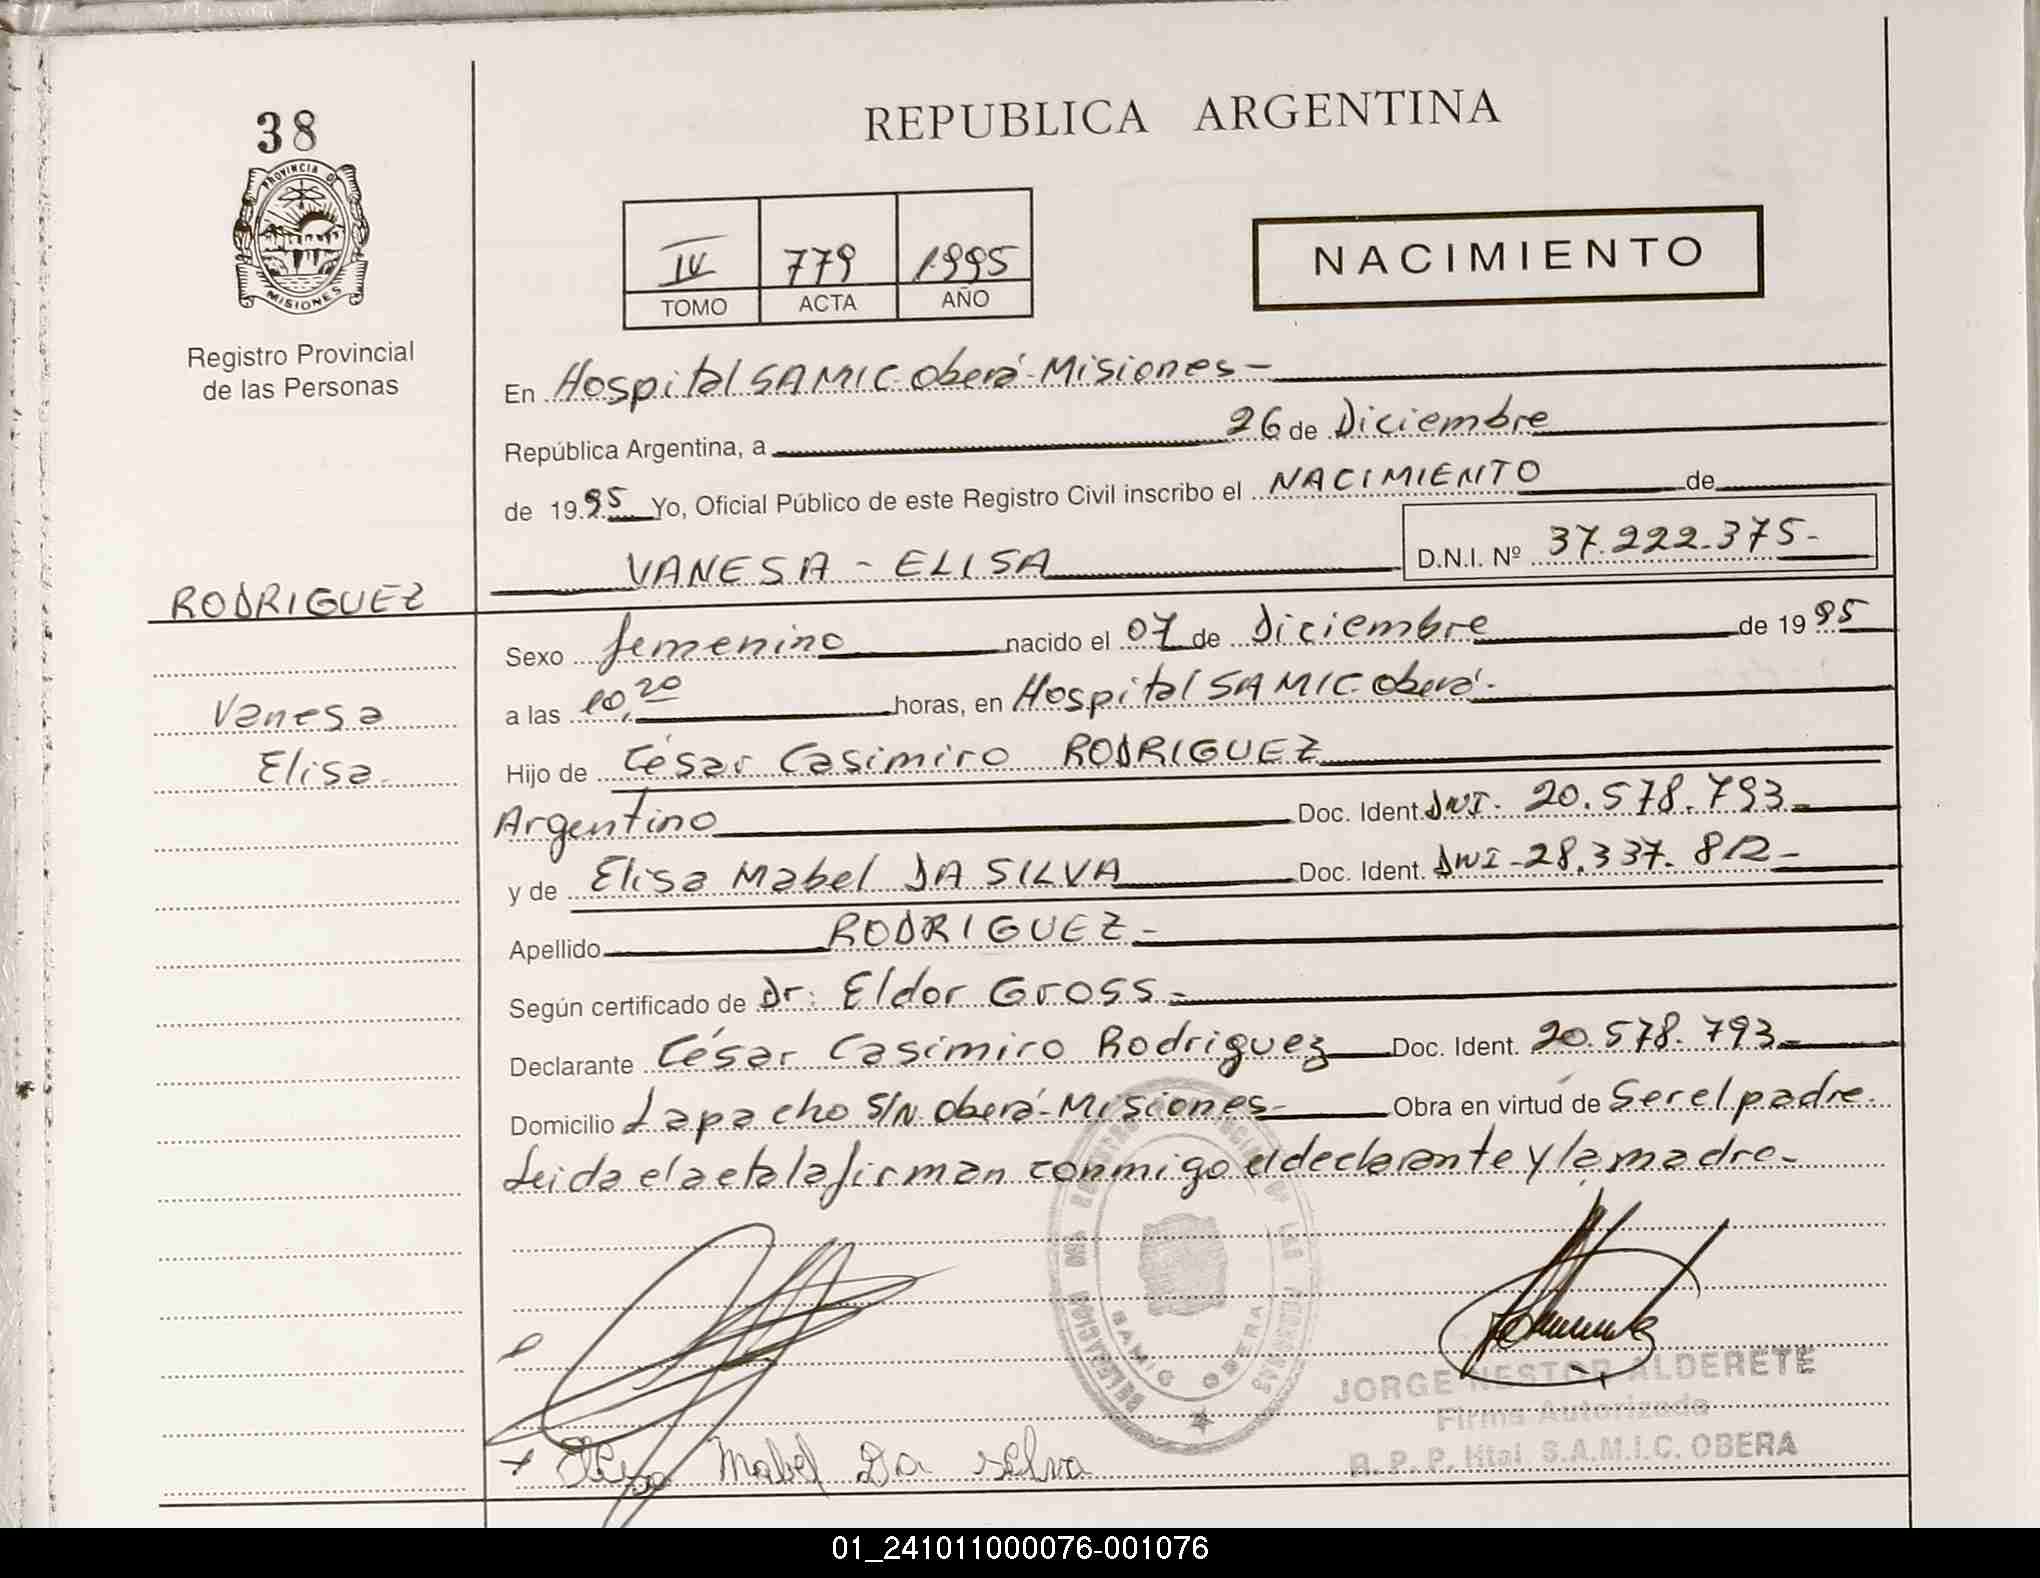 38
PROVINCIA DE
MISIONES
Registro Provincial
de las Personas
RODRIGUEZ
Vanesa
Elisa.
REPUBLICA ARGENTINA
IV 779 1995
TOMO ACTA AÑO
NACIMIENTO
En Hospital SAMIC-Oberá-Misiones-
República Argentina, a 26 de Diciembre
de 1995 Yo, Oficial Público de este Registro Civil inscribo el NACIMIENTO de
VANESA - ELISA D.N.I. Nº 37.222.375-
Sexo femenino nacido el 07 de Diciembre de 1995
a las 10,20 horas, en Hospital SAMIC-Oberá-
Hijo de César Casimiro RODRIGUEZ
Argentino Doc. Ident. DNI- 20.578.793-
y de Elisa Mabel DA SILVA Doc. Ident. DNI-28.337.812-
Apellido RODRIGUEZ-
Según certificado de Dr: Eldor Gross-
Declarante César Casimiro Rodriguez Doc. Ident. 20.578.793-
Domicilio Lapacho S/N-Oberá-Misiones- Obra en virtud de Ser el padre-
Leida el acta la firman conmigo el declarante y la madre-
DELEGACION DEL REGISTRO PROVINCIAL DE LAS PERSONAS
SAMIC OBERA
JORGE NESTOR ALDERETE
Firma Autorizada
R. P. P. Htal. S.A.M.I.C. OBERA
Elisa Mabel Da Silva
01_241011000076-001076